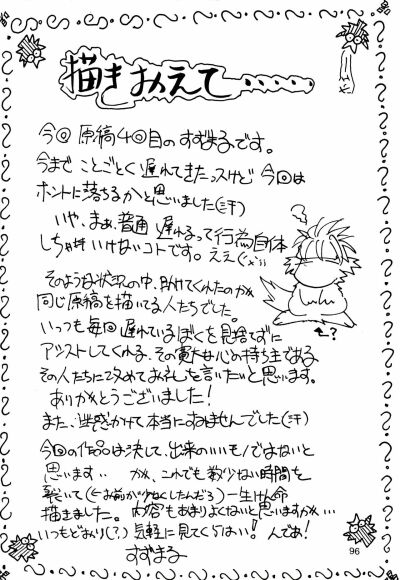 描きおえて・・・・・
今回 原稿4回目のすずまるです。
今まで ことごとく遅れてきたっスけど 今回は
ホントに落ちるかと思いました(汗)
いや、まぁ、普通 遅れるって行為自体
しちゃいけないコトです。ええ(
そのような状況の中、助けてくれたのが
同じ原稿を描いてる人たちでした。
いっつも毎回遅れているぼくを見捨てずに
アシストしてくれる、その寛大な心の持ち主である
その人たちに改めてお礼を言いたいと思います。
ありがとうございました!
また、迷惑かけて本当にすいませんでした(汗)
今回の作品は決して、出来のいいモノではないと
思います‥ が、これでも数少ない時間を
裂いて(←お前が少なくしたんだろ)一生けん命
描きました。内容もあまりよくないと思いますがﾊ…
いつもどおり(?)気軽に見てくらはい! んであ!
すずまる
←?
96